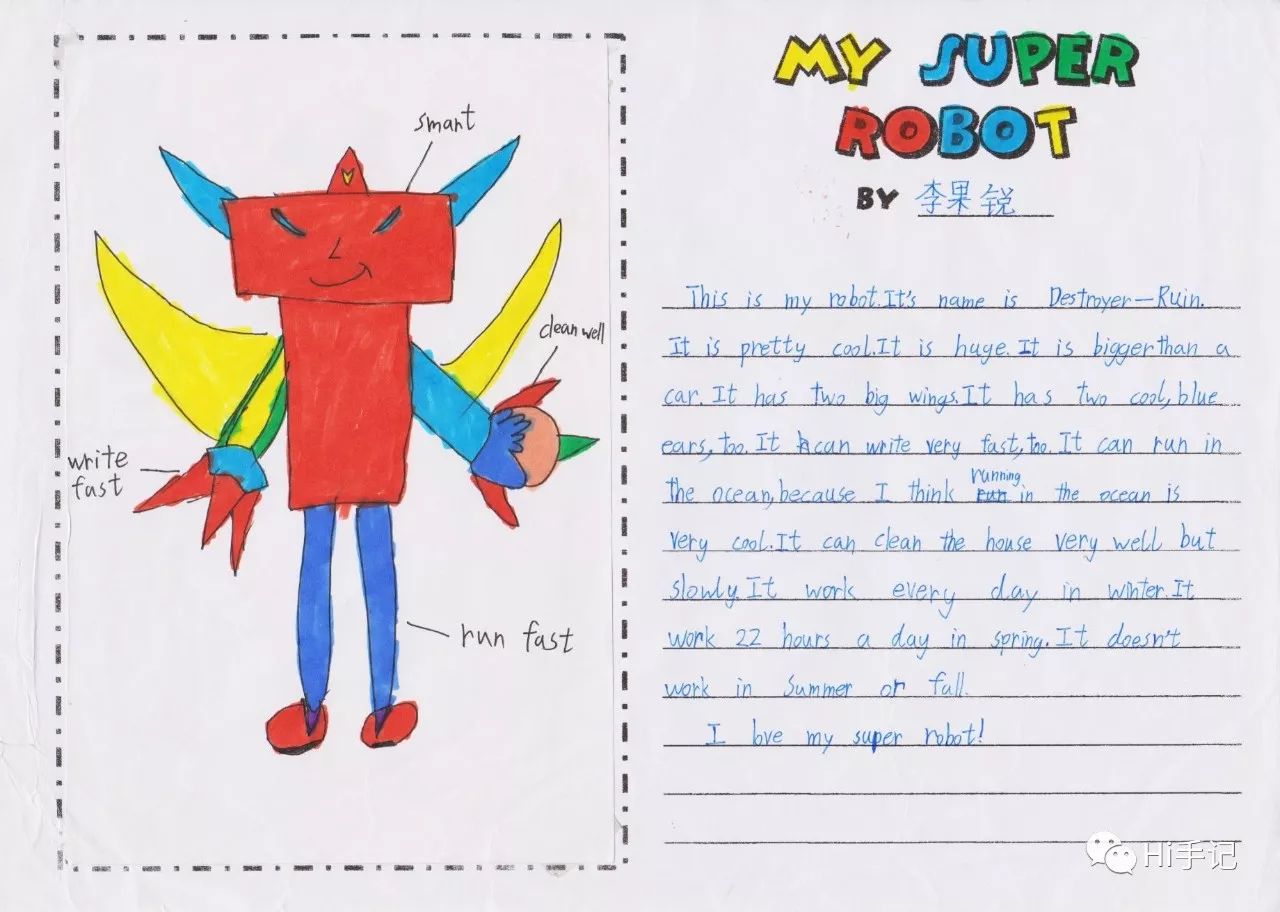 smart
clean well
write
fast
run fast
MY SUPER
ROBOT
BY 李果锐
This is my robot.It's name is Destroyer—Ruin.
It is pretty cool.It is huge.It is bigger than a
car.It has two big wings.It has two cool,blue
ears,too.It can write very fast,too.It can run in
the ocean,because I think running in the ocean is
very cool.It can clean the house very well but
slowly.It work every day in winter.It
work 22 hours a day in spring.It doesn't
work in summer or fall.
I love my super robot!
Hi手记